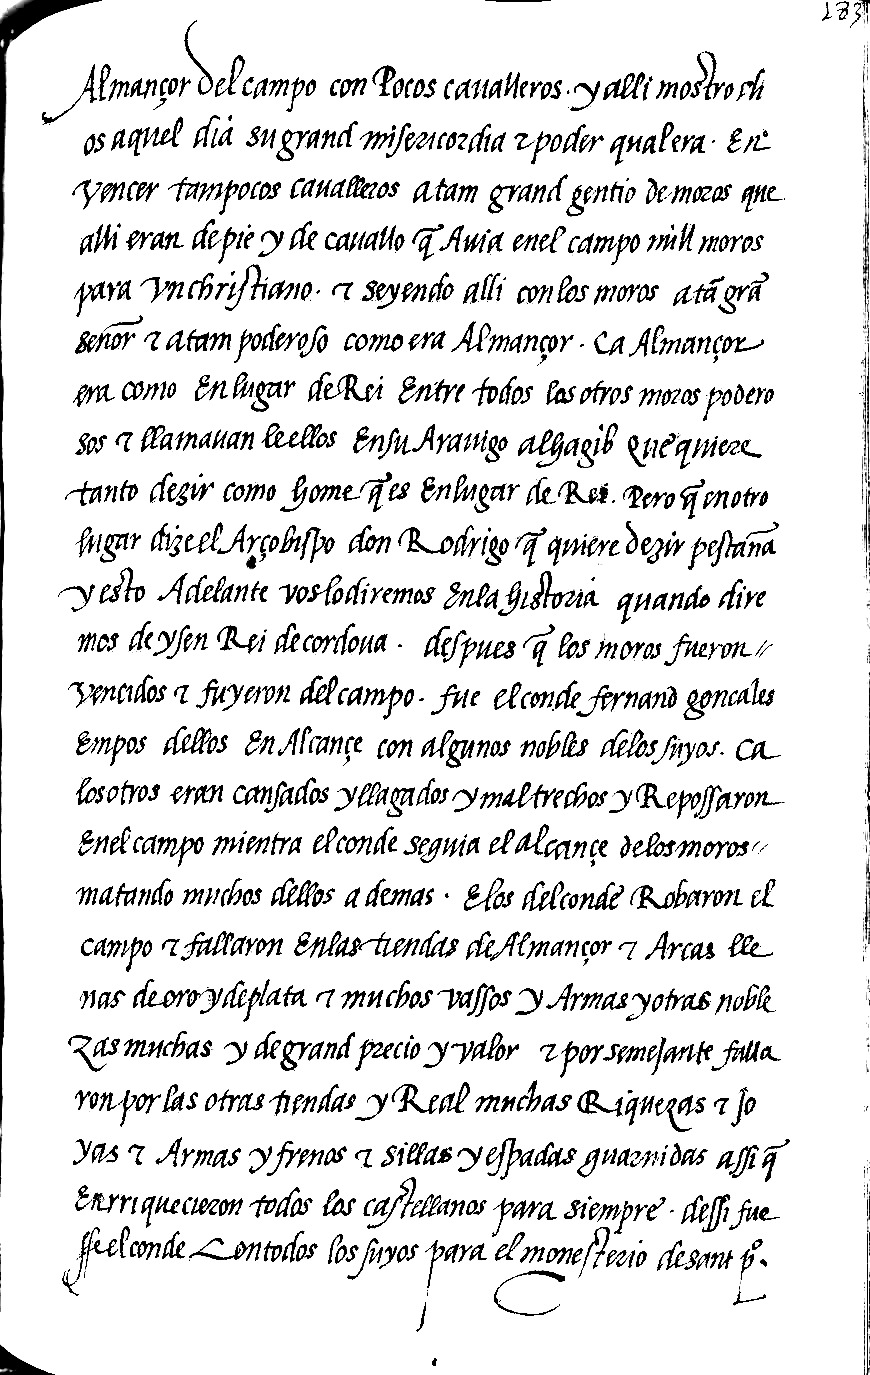 183
Almançor del campo con Pocos caualleros. y alli mostro chr
os aquel dia su grand misericordia τ poder qual era. En
vencer tampocos caualleros a tam grand gentio de moros que
alli eran de pie y de cauallo q̃ Auia enel campo mill moros
para vn christiano. τ seyendo alli con los moros a tã grã
señor τ a tam poderoso como era Almançor. Ca Almançor
era como En lugar de Rei Entre todos los otros moros podero
sos τ llamauan le ellos En su Arauigo alhagib que quiere
tanto dezir como home q̃ es En lugar de Rei. Pero q̃ en otro
lugar dize el Arçobispo don Rodrigo q̃ quiere dezir pestaña
y esto Adelante vos lo diremos En la historia quando dire
mos de ysen Rei de cordoua. despues q̃ los moros fueron //
vencidos τ fuyeron del campo. fue el conde fernand goncales
Empos dellos En Alcançe con algunos nobles de los suyos. Ca
los otros eran cansados y llagados y mal trechos y Repossaron
Enel campo mientra el conde seguia el alcançe de los moros //
matando muchos dellos a demas. E los del conde Robaron el
campo τ fallaron En las tiendas de Almançor τ Arcas lle
nas de oro y de plata τ muchos vassos y Armas y otras noble
zas muchas y de grand precio y valor τ por semejante falla
ron por las otras tiendas y Real muchas Riquezas τ Jo
yas τ Armas y frenos τ sillas y espadas guarnidas assi q̃
Enrriquecieron todos los castellanos para siempre. dessi fue
sse el conde Con todos los suyos para el monesterio de sant pº.